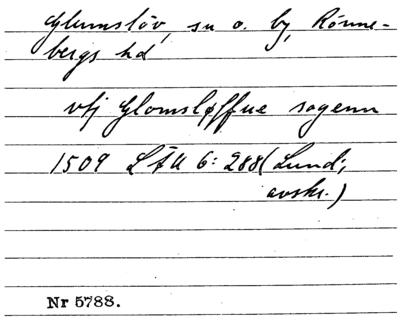 Glumslöv, sn o. by, Rönne-
bergs hd
vtj Glomsløffue sogenn
1509 LÄU 6: 288 (Lund;
avskr.)
Nr 5788.